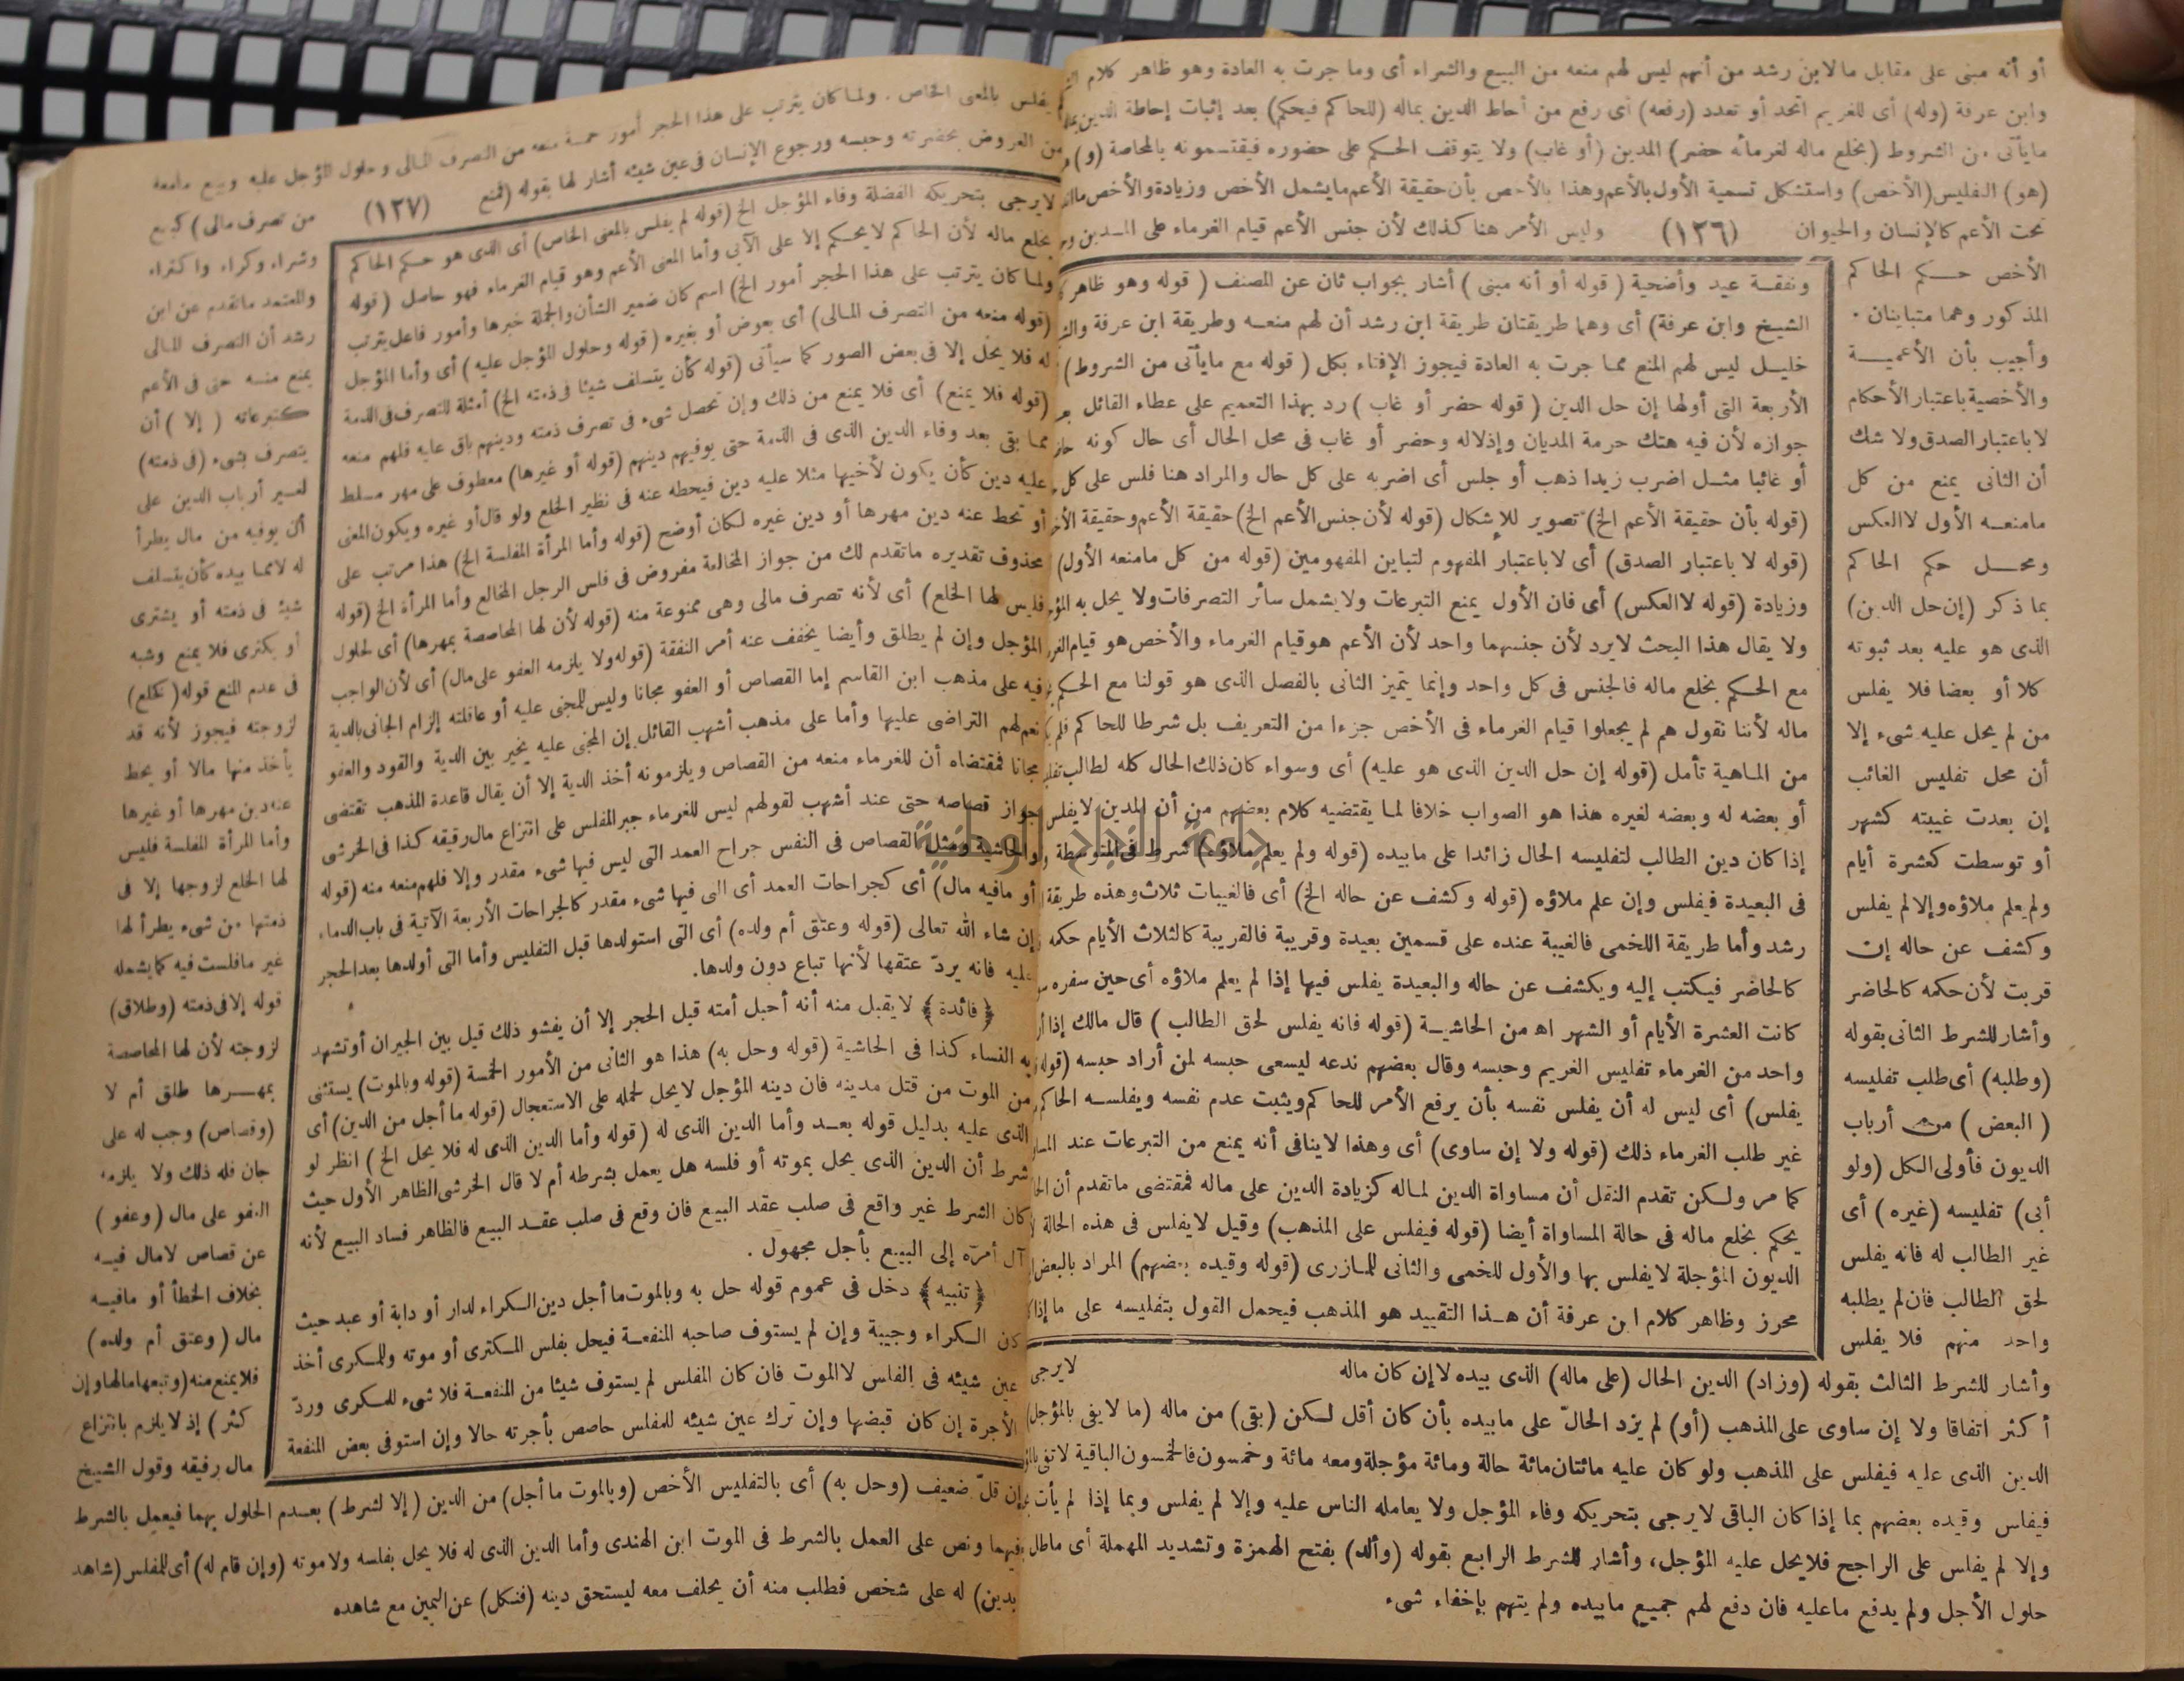 أو أنه مبنى على مقابل مالابن رشد من أنهم ليس لهم منعه من البيع والشراء أى وما جرت به العادة وهو ظاهر كلام
وابن عرفة (وله) أى للغريم اتحد أو تعدد (رفعه) أى رفع من أحاط الدين بماله (للحاكم فيحكم) بعد إثبات إحاطة الدين
مايأتى من الشروط (بخلع ماله لغرمائه حضر) المدين (أو غاب) ولا يتوقف الحكم على حضوره فيقتسمونه بالمحاصة (و)
(هو) التفليس (الأخص) واستشكل تسمية الأول بالأعم وهذا بالأخص بأن حقيقة الأعم مايشمل الأخص وزيادة والأخص
تحت الأعم كالإنسان والحيوان (١٣٦) وليس الأمر هنا كذلك لأن جنس الأعم قيام الغرماء على المدين
الأخص حكم الحاكم
المذكور وهما متباينان .
وأجيب بأن الأعمية
والأخصية باعتبار الأحكام
لا باعتبار الصدق ولا شك
أن الثانى يمنع من كل
مامنعه الأول لا العكس
ومحل حكم الحاكم
بما ذكر (إن حل الدين)
الذى هو عليه بعد ثبوته
كلا أو بعضا فلا يفلس
من لم يحل عليه شىء إلا
أن محل تفليس الغائب
إن بعدت غيبته كشهر
أو توسطت كعشرة أيام
ولم يعلم ملاؤه وإلا لم يفلس
وكشف عن حاله إن
قربت لأن حكمه كالحاضر
وأشار للشرط الثانى بقوله
(وطلبه) أى طلب تفليسه
(البعض) من أرباب
الديون فأولى الكل (ولو
أبى) تفليسه (غيره) أى
غير الطالب له فانه يفلس
لحق الطالب فان لم يطلبه
واحد منهم فلا يفلس
ونفقة عيد وأضحية (قوله أو أنه مبنى) أشار بجواب ثان عن المصنف (قوله وهو ظاهر
الشيخ وابن عرفة) أى وهما طريقتان طريقة ابن رشد أن لهم منعه وطريقة ابن عرفة
خليل ليس لهم المنع مما جرت به العادة فيجوز الإفتاء بكل (قوله مع مايأتى من الشروط)
الأربعة التى أولها إن حل الدين (قوله حضر أو غاب) رد بهذا التعميم على عطاء القائل
جوازه لأن فيه هتك حرمة المديان وإذلاله وحضر أو غاب فى محل الحال أى حال كونه
أو غائبا مثل اضرب زيدا ذهب أو جلس أى اضربه على كل حال والمراد هنا فلس على كل
(قوله بأن حقيقة الأعم الخ) تصوير للإشكال (قوله لأن جنس الأعم الخ) حقيقة الأعم وحقيقة
(قوله لا باعتبار الصدق) أى لا باعتبار المفهوم لتباين المفهومين (قوله من كل مامنعه الأول)
وزيادة (قوله لا العكس) أى فان الأول يمنع التبرعات ولا يشمل سائر التصرفات ولا يحل به
ولا يقال هذا البحث لا يرد لأن جنسهما واحد لأن الأعم هو قيام الغرماء والأخص هو قيام
مع الحكم بخلع ماله فالجنس فى كل واحد وإنما يتميز الثانى بالفصل الذى هو قولنا مع الحكم
ماله لأننا نقول هم لم يجعلوا قيام الغرماء فى الأخص جزءا من التعريف بل شرطا للحاكم
من الماهية تأمل (قوله إن حل الدين الذى هو عليه) أى وسواء كان ذلك الحال كله لطالب
أو بعضه له وبعضه لغيره هذا هو الصواب خلافا لما يقتضيه كلام بعضهم من أن المدين لا يفلس
إذا كان دين الطالب لتفليسه الحال زائدا على مابيده (قوله ولم يعلم ملاؤه) شرط فى المتوسطة
فى البعيدة فيفلس وإن علم ملاؤه (قوله وكشف عن حاله الخ) أى فالغيبات ثلاث وهذه طريقة
رشد وأما طريقة اللخمى فالغيبة عنده على قسمين بعيدة وقريبة فالقريبة كالثلاث الأيام حكمه
كالحاضر فيكتب إليه ويكشف عن حاله والبعيدة يفلس فيها إذا لم يعلم ملاؤه أى حين سفره
كانت العشرة الأيام أو الشهر اه من الحاشية (قوله فانه يفلس لحق الطالب) قال مالك إذا
واحد من الغرماء تفليس الغريم وحبسه وقال بعضهم ندعه ليسعى حبسه لمن أراد حبسه
يفلس) أى ليس له أن يفلس نفسه بأن يرفع الأمر للحاكم ويثبت عدم نفسه ويفلسه الحاكم
غير طلب الغرماء ذلك (قوله ولا إن ساوى) أى وهذا لا ينافى أنه يمنع من التبرعات عند
كما مر ولكن تقدم النقل أن مساواة الدين لماله كزيادة الدين على ماله فمقتضى ماتقدم أن
يحكم بخلع ماله فى حالة المساواة أيضا (قوله فيفلس على المذهب) وقيل لا يفلس فى هذه الحالة
الديون المؤجلة لا يفلس بها والأول للخمى والثانى للمازرى (قوله وقيده بعضهم) المراد بالبعض
محرز وظاهر كلام ابن عرفة أن هذا التقييد هو المذهب فيحمل القول بتفليسه على ما إذا
لا يرجى
وأشار للشرط الثالث بقوله (وزاد) الدين الحال (على ماله) الذى بيده لا إن كان ماله
أكثر اتفاقا ولا إن ساوى على المذهب (أو) لم يزد الحالّ على مابيده بأن كان أقل لكن (بقى) من ماله (ما لا يفى بالمؤجل)
الدين الذى عليه فيفلس على المذهب ولو كان عليه مائتان مائة حالة ومائة مؤجلة ومعه مائة وخمسون فالخمسون الباقية لاتفى
فيفلس وقيده بعضهم بما إذا كان الباقى لا يرجى بتحريكه وفاء المؤجل ولا يعامله الناس عليه وإلا لم يفلس وبما إذا لم يأت
وإلا لم يفلس على الراجح فلا يحل عليه المؤجل، وأشار للشرط الرابع بقوله (وألد) بفتح الهمزة وتشديد المهملة أى ماطل
حلول الأجل ولم يدفع ماعليه فان دفع لهم جميع مابيده ولم يتهم بإخفاء شىء
يفلس بالمعنى الخاص . ولما كان يترتب على هذا الحجر أمور خمسة منعه من التصرف المالى وحلول المؤجل عليه وبيع مامعه
من العروض بحضرته وحبسه ورجوع الإنسان فى عين شيئه أشار لها بقوله (فمنع (١٣٧)
من تصرف مالى) كبيع
وشراء وكراء واكتراء
والمعتمد ماتقدم عن ابن
رشد أن التصرف المالى
يمنع منه حتى فى الأعم
كتبرعاته (إلا) أن
يتصرف بشىء (فى ذمته)
لغير أرباب الدين على
أن يوفيه من مال يطرأ
له لا مما بيده كأن يتسلف
شيئا فى ذمته أو يشترى
أو يكترى فلا يمنع وشبه
فى عدم المنع قوله (كخلع)
لزوجته فيجوز لأنه قد
يأخذ منها مالا أو يحط
عنه دين مهرها أو غيرها
وأما المرأة المفلسة فليس
لها الخلع لزوجها إلا فى
ذمتها من شىء يطرأ لها
غير مافلست فيه كما يشمله
قوله إلا فى ذمته (وطلاق)
لزوجته لأن لها المحاصصة
بمهرها طلق أم لا
(وقصاص) وجب له على
جان فله ذلك ولا يلزمه
العفو على مال (وعفو)
عن قصاص لا مال فيه
بخلاف الخطأ أو مافيه
مال (وعتق أم ولده)
فلا يمنع منه (وتبعها مالها وإن
كثر) إذ لا يلزم بانتزاع
مال رقيقه وقول الشيخ
لا يرجى بتحريكه الفضلة وفاء المؤجل الخ (قوله لم يفلس بالمعنى الخاص) أى الذى هو حكم الحاكم
بخلع ماله لأن الحاكم لا يحكم إلا على الآبى وأما المعنى الأعم وهو قيام الغرماء فهو حاصل (قوله
ولما كان يترتب على هذا الحجر أمور الخ) اسم كان ضمير الشأن والجملة خبرها وأمور فاعل يترتب
(قوله منعه من التصرف المالى) أى بعوض أو بغيره (قوله وحلول المؤجل عليه) أى وأما المؤجل
له فلا يحل إلا فى بعض الصور كما سيأتى (قوله كأن يتسلف شيئا فى ذمته الخ) أمثلة للتصرف فى الذمة
(قوله فلا يمنع) أى فلا يمنع من ذلك وإن تحصل شىء فى تصرف ذمته ودينهم باق عليه فلهم منعه
مما بقى بعد وفاء الدين الذى فى الذمة حتى يوفيهم دينهم (قوله أو غيرها) معطوف على مهر مسلط
عليه دين كأن يكون لأخيها مثلا عليه دين فيحطه عنه فى نظير الخلع ولو قال أو غيره ويكون المعنى
أو تحط عنه دين مهرها أو دين غيره لكان أوضح (قوله وأما المرأة المفلسة الخ) هذا مرتب على
محذوف تقديره ماتقدم لك من جواز المخالعة مفروض فى فلس الرجل المخالع وأما المرأة الخ (قوله
فليس لها الخلع) أى لأنه تصرف مالى وهى ممنوعة منه (قوله لأن لها المحاصصة بمهرها) أى لحلول
المؤجل وإن لم يطلق وأيضا يخفف عنه أمر النفقة (قوله ولا يلزمه العفو على مال) أى لأن الواجب
فيه على مذهب ابن القاسم إما القصاص أو العفو مجانا وليس للمجنى عليه أو عاقلته إلزام الجانى بالدية
نعم لهم التراضى عليها وأما على مذهب أشهب القائل إن المجنى عليه يخير بين الدية والقود والعفو
مجانا فمقتضاه أن للغرماء منعه من القصاص ويلزمونه أخذ الدية إلا أن يقال قاعدة المذهب تقتضى
جواز قصاصه حتى عند أشهب لقولهم ليس للغرماء جبر المفلس على انتزاع مال رقيقه كذا فى الخرشى
والحاشية ومثل القصاص فى النفس جراح العمد التى ليس فيها شىء مقدر وإلا فلهم منعه منه (قوله
أو مافيه مال) أى كجراحات العمد أى التى فيها شىء مقدر كالجراحات الأربعة الآتية فى باب الدماء
إن شاء الله تعالى (قوله وعتق أم ولده) أى التى استولدها قبل التفليس وأما التى أولدها بعد الحجر
عليه فانه يردّ عتقها لأنها تباع دون ولدها.
﴿فائدة﴾ لا يقبل منه أنه أحبل أمته قبل الحجر إلا أن يفشو ذلك قبل بين الجيران أو تشهد
به النساء كذا فى الحاشية (قوله وحل به) هذا هو الثانى من الأمور الخمسة (قوله وبالموت) يستثنى
من الموت من قتل مدينه فان دينه المؤجل لا يحل لحمله على الاستعجال (قوله ما أجل من الدين) أى
الذى عليه بدليل قوله بعد وأما الدين الذى له (قوله وأما الدين الذى له فلا يحل الخ) انظر لو
شرط أن الدين الذى يحل بموته أو فلسه هل يعمل بشرطه أم لا قال الخرشى الظاهر الأول حيث
كان الشرط غير واقع فى صلب عقد البيع فان وقع فى صلب عقد البيع فالظاهر فساد البيع لأنه
آل أمره إلى البيع بأجل مجهول .
﴿تنبيه﴾ دخل فى عموم قوله حل به وبالموت ما أجل دين الكراء لدار أو دابة أو عبد حيث
كان الكراء وجيبة وإن لم يستوف صاحبه المنفعة فيحل بفلس المكترى أو موته وللمكرى أخذ
عين شيئه فى الفلس لا الموت فان كان المفلس لم يستوف شيئا من المنفعة فلا شىء للمكرى وردّ
الأجرة إن كان قبضها وإن ترك عين شيئه للمفلس حاصص بأجرته حالا وإن استوفى بعض المنفعة
إن قلّ ضعيف (وحل به) أى بالتفليس الأخص (وبالموت ما أجل) من الدين (إلا لشرط) بعدم الحلول بهما فيعمل بالشرط
فيهما ونص على العمل بالشرط فى الموت ابن الهندى وأما الدين الذى له فلا يحل بفلسه ولا موته (وإن قام له) أى للمفلس (شاهد
بدين) له على شخص فطلب منه أن يحلف معه ليستحق دينه (فنكل) عن اليمين مع شاهده
جامعة النجاح الوطنية